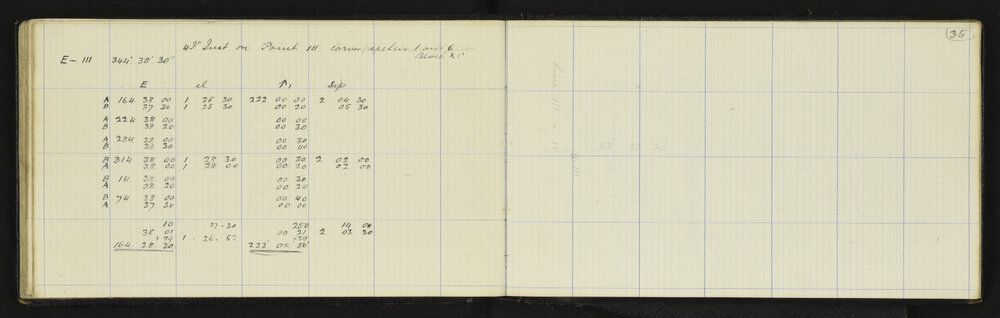 4 P" Inst on Point III Corner section 1 and 6
Block XI
E - III 344° 38' 30"
E el ↑1 Dip
A 164 38 00 1 25 30 222 00 00 2 04 30
B 37 30 1 25 30 00 20 05 30
A 224 38 00 00 00
B 38 20 00 30
A 284 38 00 00 30
B 38 30 00 40
B 314 38 00 1 28 30 00 20 2 02 00
A 38 00 1 28 00 00 20 02 00
B 14 38 00 00 30
A 38 20 00 20
B 74 38 00 00 40
A 37 30 00 00
10 27.30 250 14 00
38 01 00 21 2 03 30
29 1. 26. 52 29
164. 38. 30 222° 00' 50"
35
Line III